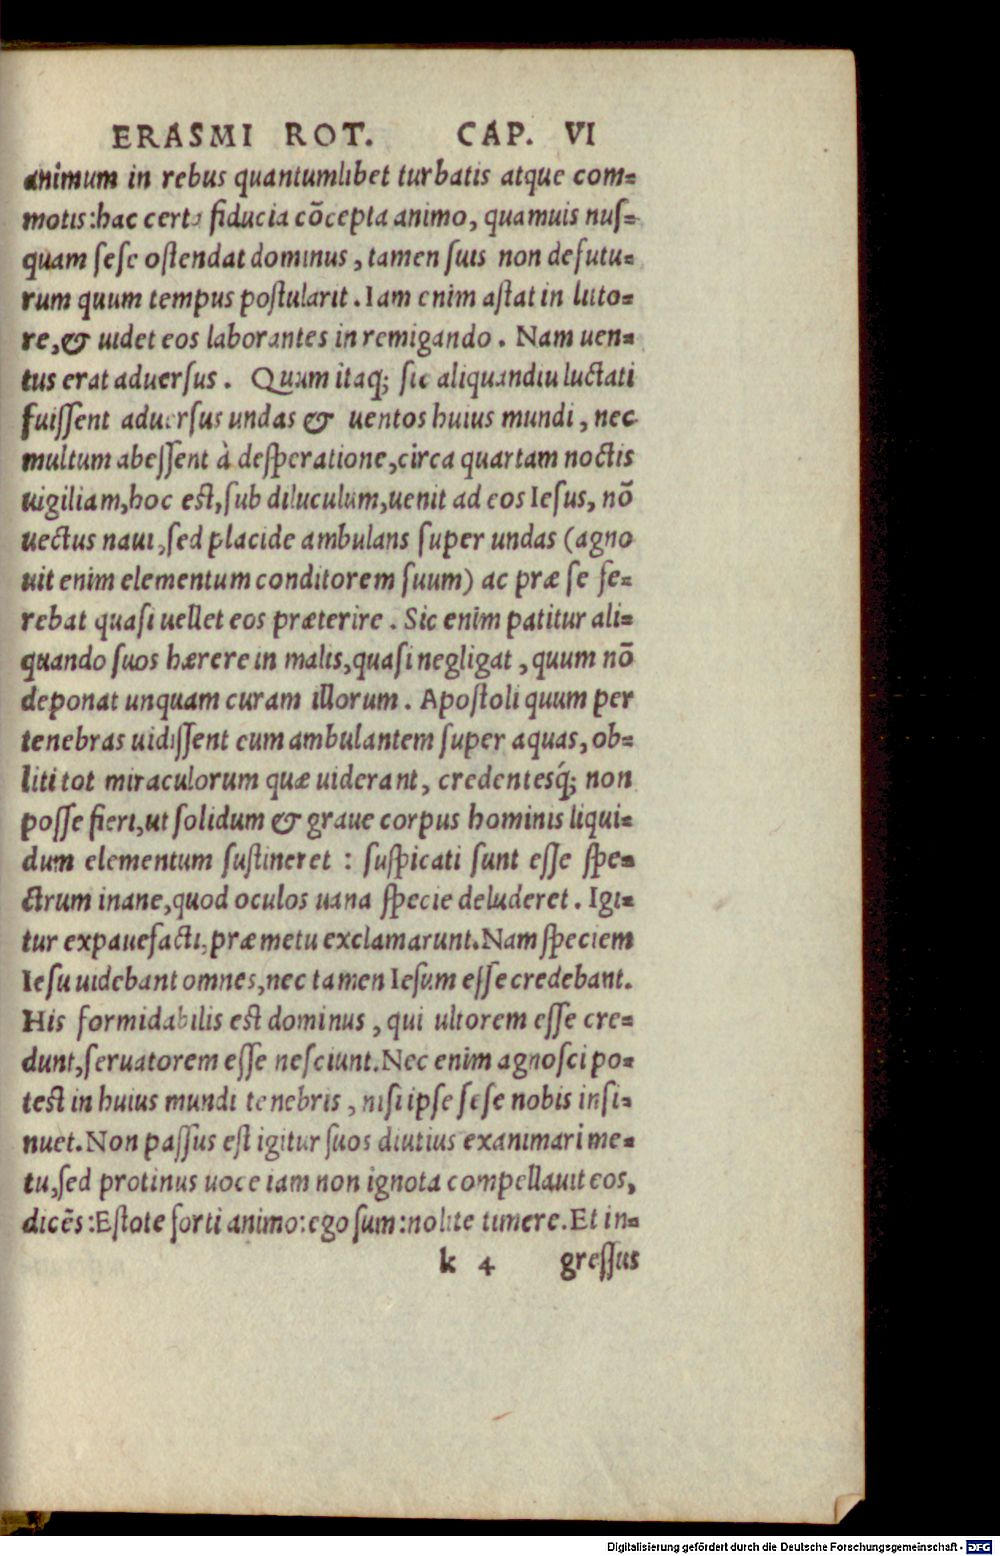 ERASMI ROT. CAP. VI
animum in rebus quantumlibet turbatis atque com=
motis:hac certa fiducia cõcepta animo, quamuis nuſ=
quam ſeſe oſtendat dominus, tamen ſuis non defutu=
rum quum tempus poſtularit. Iam enim aſtat in litto=
re,& uidet eos laborantes in remigando. Nam uen=
tus erat aduerſus. Quum itaq; ſic aliquandiu luctati
fuiſſent aduerſus undas & uentos huius mundi, nec
multum abeſſent à deſperatione,circa quartam noctis
uigiliam,hoc eſt,ſub diluculum,uenit ad eos Ieſus, nõ
uectus naui,ſed placide ambulans ſuper undas (agno
uit enim elementum conditorem ſuum) ac præ ſe fe=
rebat quaſi uellet eos præterire. Sic enim patitur ali=
quando ſuos hærere in malis,quaſi negligat, quum nõ
deponat unquam curam illorum. Apoſtoli quum per
tenebras uidiſſent eum ambulantem ſuper aquas, ob=
liti tot miraculorum quæ uiderant, credentesq́; non
poſſe fieri,ut ſolidum & graue corpus hominis liqui=
dum elementum ſuſtineret : ſuſpicati ſunt eſſe ſpe=
ctrum inane,quod oculos uana ſpecie deluderet. Igi=
tur expauefacti,præ metu exclamarunt. Nam ſpeciem
Ieſu uidebant omnes,nec tamen Ieſum eſſe credebant.
His formidabilis eſt dominus, qui ultorem eſſe cre=
dunt,ſeruatorem eſſe neſciunt. Nec enim agnoſci po=
teſt in huius mundi tenebris, niſi ipſe ſeſe nobis inſi=
nuet. Non paſſus eſt igitur ſuos diutius exanimari me=
tu,ſed protinus uoce iam non ignota compellauit eos,
dicẽs:Eſtote forti animo:ego ſum:nolite timere. Et in=
k 4 greſſus
Digitalisierung gefördert durch die Deutsche Forschungsgemeinschaft - DFG